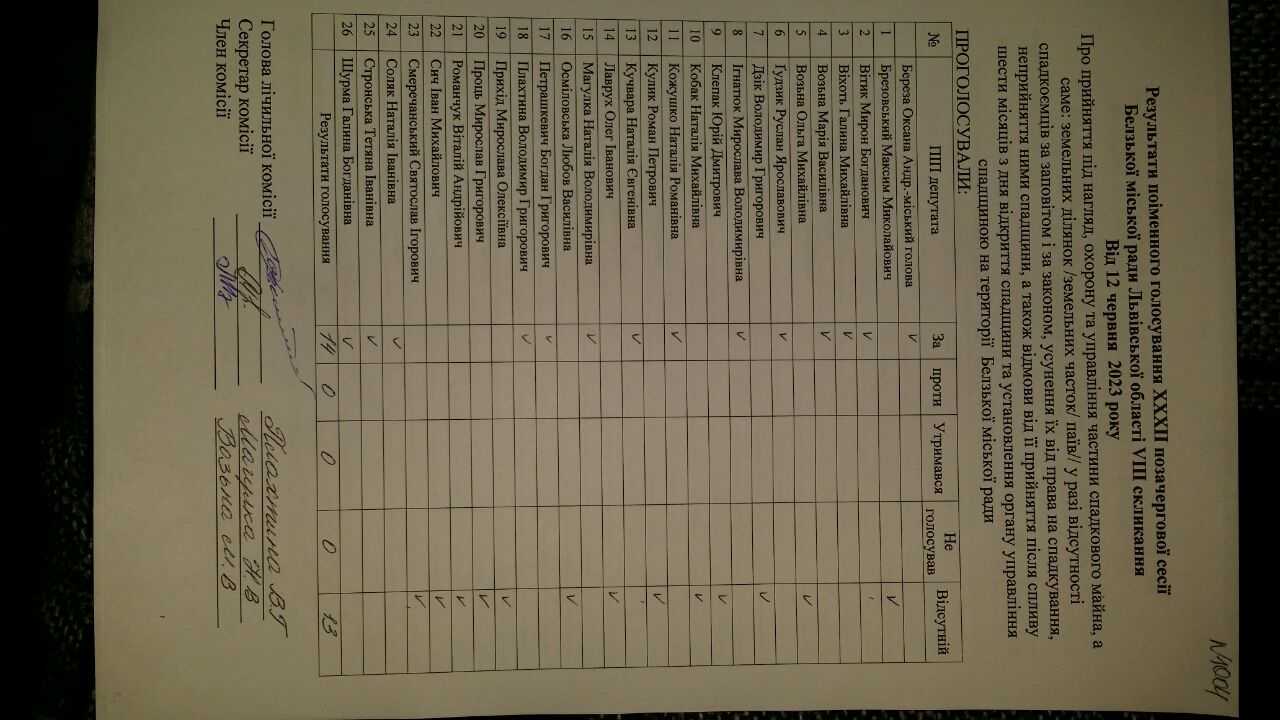 №1004
Результати поіменного голосування XXXII позачергової сесії
Белзької міської ради Львівської області VIII скликання
Від 12 червня 2023 року
Про прийняття під нагляд, охорону та управління частини спадкового майна, а
саме: земельних ділянок /земельних часток/ паїв// у разі відсутності
спадкоємців за заповітом і за законом, усунення їх від права на спадкування,
неприйняття ними спадщини, а також відмови від її прийняття після спливу
шести місяців з дня відкриття спадщини та установлення органу управління
спадщиною на території Белзької міської ради
ПРОГОЛОСУВАЛИ:
№ ПІП депутата За проти Утримався Не голосував Відсутній
Береза Оксана Андр.-міський голова ✓
1 Брезовський Максим Миколайович ✓
2 Вітик Мирон Богданович ✓
3 Віхоть Галина Михайлівна ✓
4 Возьна Марія Василівна ✓
5 Возьна Ольга Михайлівна ✓
6 Ґудзик Руслан Ярославович ✓
7 Дзік Володимир Григорович ✓
8 Ігнатюк Мирослава Володимирівна ✓
9 Клепак Юрій Дмитрович ✓
10 Кобак Наталія Михайлівна ✓
11 Кожушко Наталія Романівна ✓
12 Кулик Роман Петрович ✓
13 Кучвара Наталія Євгенівна ✓
14 Лаврух Олег Іванович ✓
15 Магулка Наталія Володимирівна ✓
16 Осміловська Любов Василівна ✓
17 Петрашкевич Богдан Григорович ✓
18 Плахтина Володимир Григорович ✓
19 Прихід Мирослава Олексіївна ✓
20 Проць Мирослав Григорович ✓
21 Романчук Віталій Андрійович ✓
22 Сич Іван Михайлович ✓
23 Смеречанський Святослав Ігорович ✓
24 Соляк Наталія Іванівна ✓
25 Стронська Тетяна Іванівна ✓
26 Шурма Галина Богданівна ✓
Результати голосування 14 0 0 0 13
Голова лічильної комісії Плахтина В.Г
Секретар комісії Магулка Н.В
Член комісії Возьна М.В